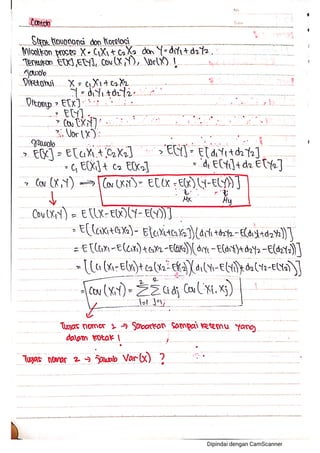 Contoh
Sifat Kovariansi dan Korelasi
Misalkan proses X = C₁X₁ + C₂X₂ dan Y = d₁Y₁ + d₂Y₂.
Tentukan E[X], E[Y], Cov (X,Y), Var(X) !
Jawab
Diketahui X = C₁X₁ + C₂X₂
Y = d₁Y₁ + d₂Y₂
Ditanya • E[X]
• E[Y]
• Cov (X,Y)
• Var (X)
Jawab
> E[X] = E[C₁X₁ + C₂X₂] > E[Y] = E[d₁Y₁ + d₂Y₂]
= C₁ E[X₁] + C₂ E[X₂] = d₁ E[Y₁] + d₂ E[Y₂]
> Cov (X,Y) → Cov (X,Y) = E[(X - E(X)) (Y - E(Y))]
Mx My
Cov (X,Y) = E[(X - E(X)) (Y - E(Y))]
= E[(C₁X₁ + C₂X₂) - E[C₁X₁ + C₂X₂]) (d₁Y₁ + d₂Y₂ - E(d₁Y₁ + d₂Y₂))]
= E[(C₁X₁ - E(C₁X₁) + C₂X₂ - E(C₂X₂)) (d₁Y₁ - E(d₁Y₁) + d₂Y₂ - E(d₂Y₂))]
= [(C₁ (X₁ - E(X₁)) + C₂ (X₂ - E(X₂))) (d₁ (Y₁ - E(Y₁)) + d₂ (Y₂ - E(Y₂)))]
Cov (X,Y) = Σ Σ Ci dj Cov (Xi, Xj)
Tugas nomor 1 → Jabarkan sampai ketemu yang
dalam kotak !
Tugas nomor 2 → Jawab Var (X) ?
Dipindai dengan CamScanner